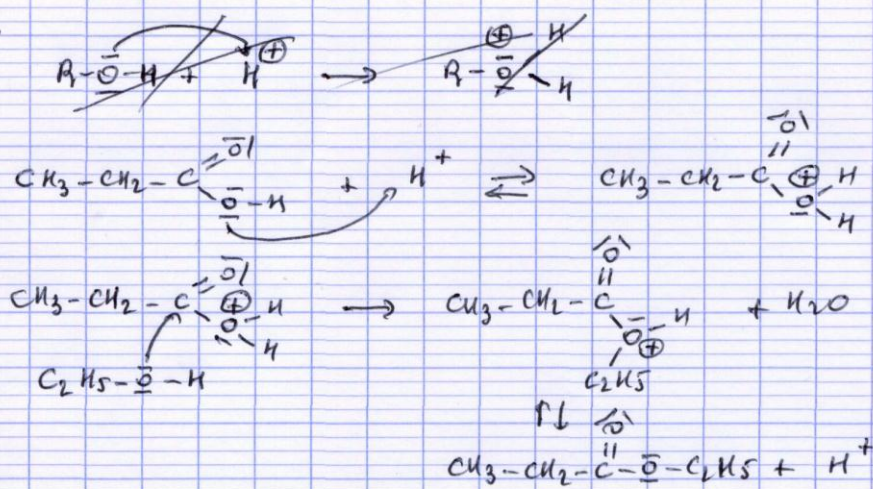 R-O-H + H⊕ ⟶ R-O⊕ H
H
O
CH3-CH2-C O-H + H+ ⇌ CH3-CH2-C O⊕ H
H
CH3-CH2-C O O⊕ H H ⟶ CH3-CH2-C O O⊕ H + H2O
C2H5-O-H C2H5
⇅
O
CH3-CH2-C-O-C2H5 + H+